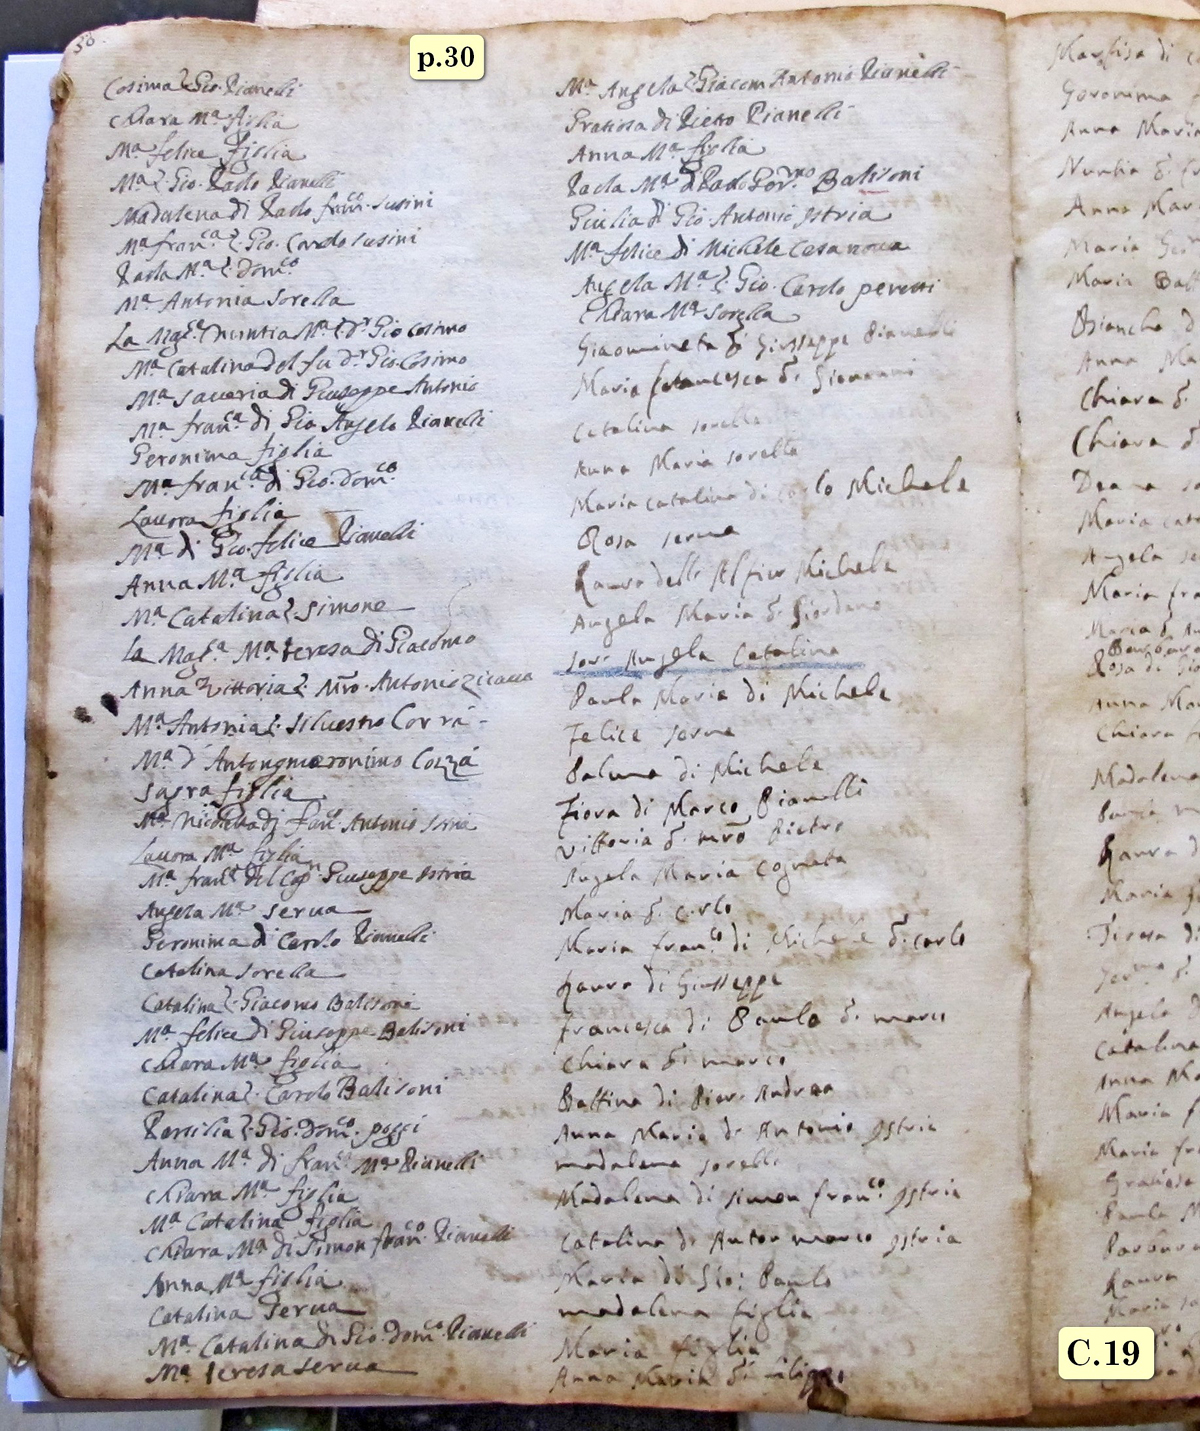 30
p.30
Cosima q. Gio. Pianelli
Chiara Mª figlia
Mª felice figlia
Mª q. Gio. Paolo Pianelli
Madalena di Paolo franco. Susini
Mª franca. q. Gio. Carolo Susini
Paola Mª q. Domco.
Mª Antonia sorella
La Magca. Nuntia Mª q. Dr. Gio Cosimo
Mª Catalina del fu Dr. Gio. Cosimo
Mª Saueria di Giuseppe Antonio
Mª franca. di Gio Angelo Pianelli
Geronima figlia
Mª franca. di Gio. Domco.
Lauora figlia
Mª di Gio. felice Pianelli
Anna Mª figlia
Mª Catalina q. Simone
La Magca. Mª teresa di Giacomo
Anna Vittoria q. Mro. Antonio
Mª Antonia q. Siluestro
Mª d'
figlia
Mª di Antonio
Lauora Mª figlia
Mª franca. del Capn. Giuseppe Istria
Angela Mª Serua
Geronima di Carolo Pianelli
Catalina sorella
Catalina q. Giacomo Balisoni
Mª felice di Giuseppe Balisoni
Chiara Mª figlia
Catalina q. Carolo Balisoni
Persilia q. Gio: Domco. poggi
Anna Mª di franco. Mª Pianelli
Chiara Mª figlia
Mª Catalina figlia
Chiara Mª di Simon franco. Pianelli
Anna Mª figlia
Catalina Serua
Mª Catalina di Gio. Domco. Pianelli
Mª teresa serua
Mª Angela q. Giacom Antonio Pianelli
Gratiosa di Pietro Pianelli
Anna Mª figlia
Paola Mª di Paolo Balisoni
Giulia di Gio. Antonio Istria
Mª felice di Michele Casanoua
Angela Mª q. Gio. Carolo peretti
Chiara Mª Sorella
Giacomineta q. Giusseppe Pianelli
Maria francesca q. Giovanni
Catalina sorella
Anna Maria sorella
Maria catalina di carlo Michele
Rosa serua
Laura dello Alfier Michele
Angela Maria q. Giordano
Sor. Angela Catalina
Paula Maria di Michele
Felice serua
Paluna di Michele
Fiora di Marco Pianelli
Vittoria q. mro. Pietro
Angela Maria Cognata
Maria q. carlo
Maria franco. di Michele q. carlo
Laura di Giusseppe
francesca di Paulo q. marco
Chiara q. marco
Battina di Pier Andrea
Anna Maria di Antonio Istria
madalena sorella
Madalena di simon franco. Istria
Catalina di Anton marco Istria
Maria di Gio: Paulo
madalena figlia
Maria figlia
Anna Maria q. filippo
Geronima
Anna Maria
Nuntia q.
Anna Mar
Maria
Maria Bat
Bianca d
Anna Ma
Chiara q.
Chiara q
Deana so
Maria cat
Angela se
Maria fra
Maria q.
Barbara
Rosa di Gio
Anna Mar
Chiara f
Madalena
Laura d
Maria
Teresa di
Angela
Catalina
Anna Ma
Maria f
Maria fra
Gratiosa
Paula M
Barbara
Laura
Maria so
C.19